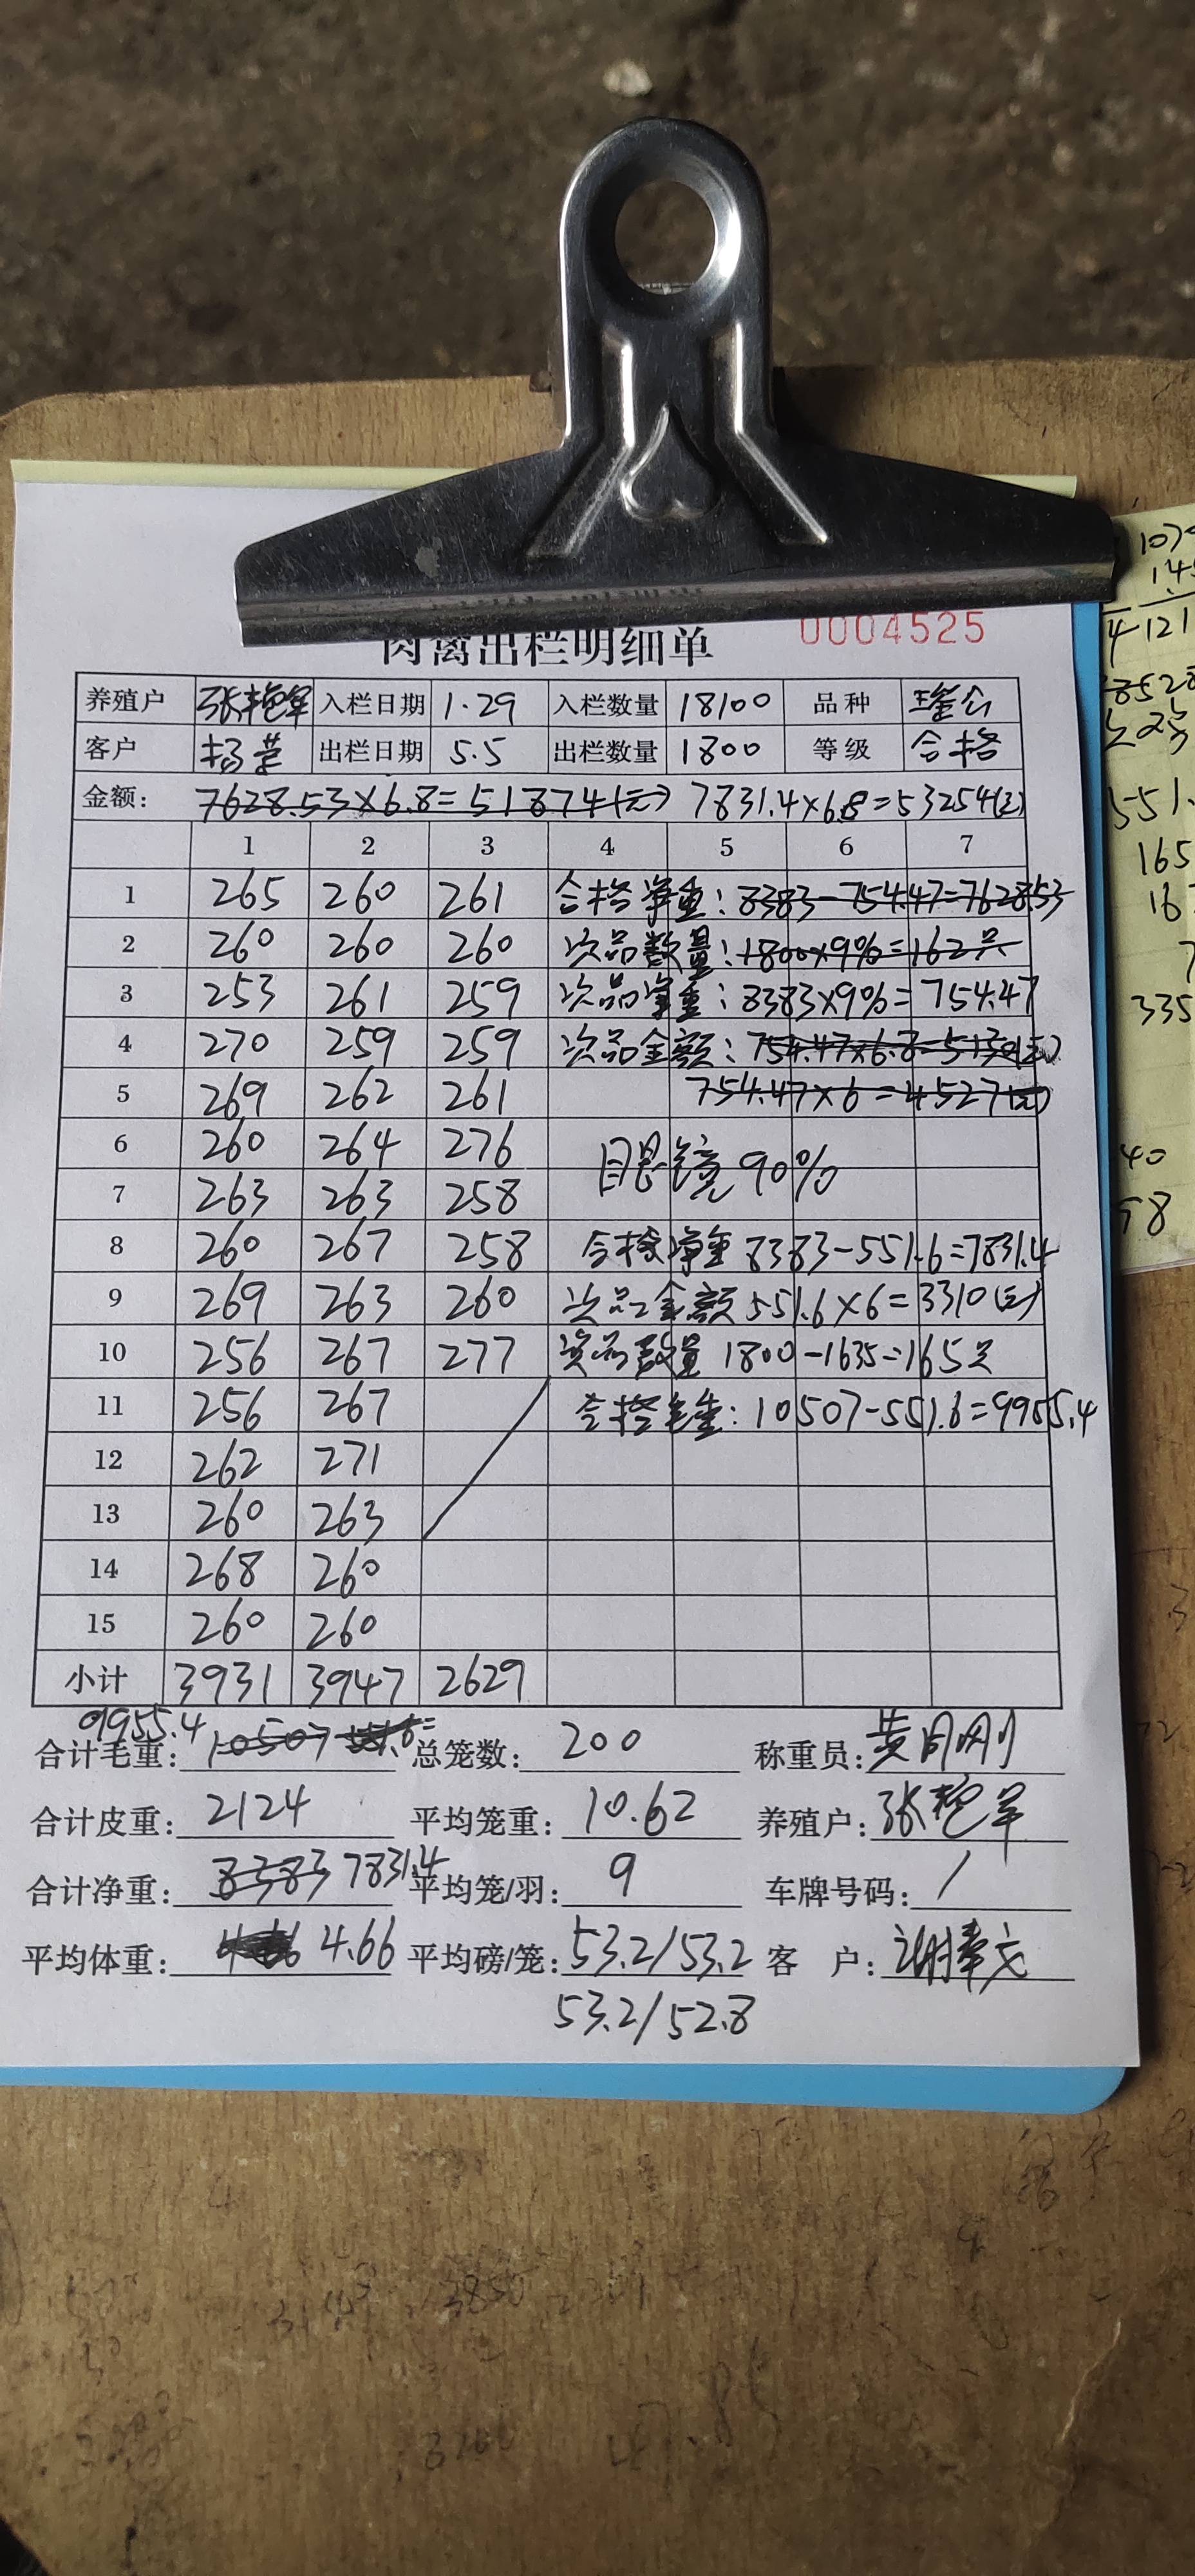 肉禽出栏明细单 0004525
养殖户 张艳军 入栏日期 1.29 入栏数量 18100 品种
客户 杨 出栏日期 5.5 出栏数量 1800 等级 合格
金额: 7628.53×6.8=51874(元) 7831.4×6.8=53254(元)
1 2 3 4 5 6 7
1 265 260 261 合格净重:8383-754.47=7628.53
2 260 260 260 次品数量:1800×9%=162只
3 253 261 259 次品净重:8383×9%=754.47
4 270 259 259 次品金额:754.47×6.8=5130(元)
5 269 262 261 754.47×6=4527(元)
6 260 264 276
眼镜90%
7 263 263 258
8 260 267 258 合格净重8383-551.6=7831.4
9 269 263 260 次品金额551.6×6=3310(元)
10 256 267 277 次品数量1800-1635=165只
11 256 267 合格毛重:10507-551.6=9955.4
12 262 271
13 260 263
14 268 260
15 260 260
小计 3931 3947 2629
9955.4
合计毛重: 10507 551.6= 总笼数: 200 称重员: 黄周刚
合计皮重: 2124 平均笼重: 10.62 养殖户: 张艳军
合计净重: 8383 7831.4 平均笼/羽: 9 车牌号码: /
平均体重: 4.66 平均磅/笼: 53.2/53.2 客 户: 谢
53.2/52.8
1070
121
8528
551.
165
16
335
40
58